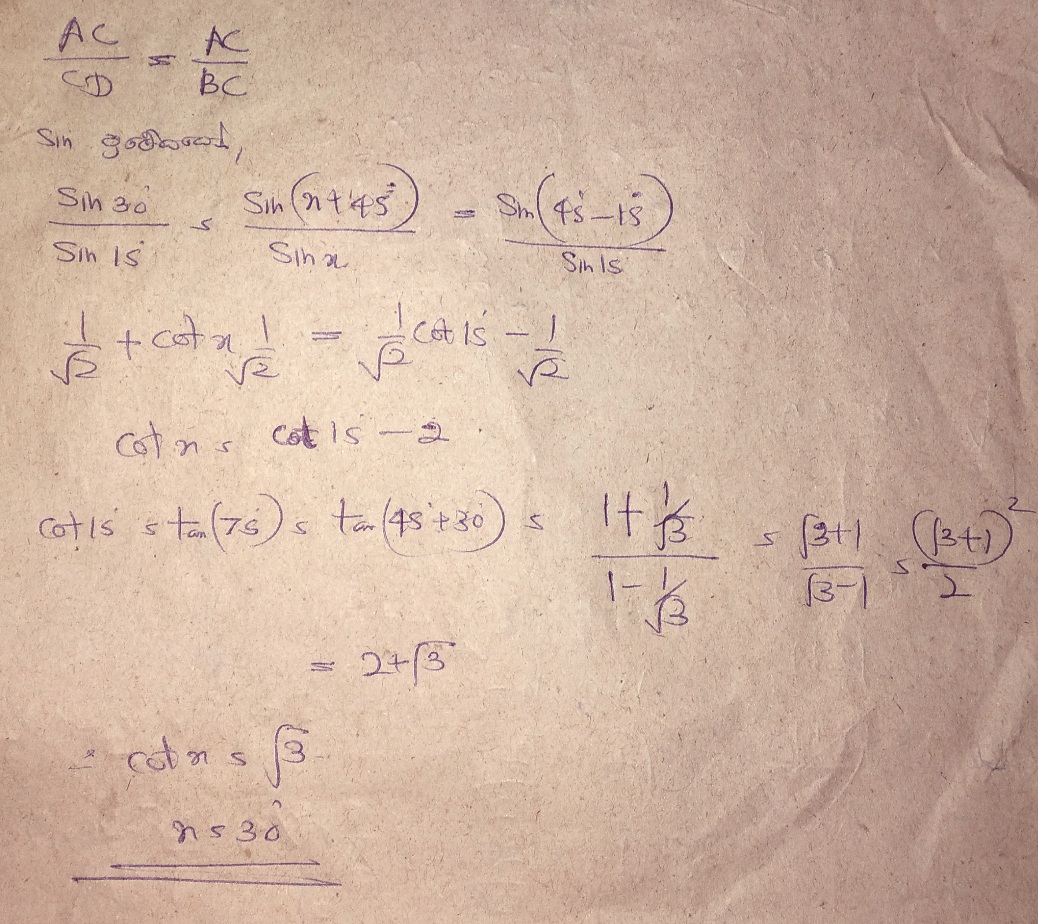 AC/CD = AC/BC
Sin ප්‍රමේයයෙන්,
Sin 30°/Sin 15° = Sin(x+45°)/Sin x = Sin(45°-15°)/Sin 15
1/√2 + cot x 1/√2 = 1/√2 cot 15° - 1/√2
cot x = cot 15 - 2
cot 15° = tan(75°) = tan(45°+30°) = (1+1/√3)/(1-1/√3) = (√3+1)/(√3-1) = (√3+1)²/2
= 2+√3
∴ cot x = √3
x = 30°